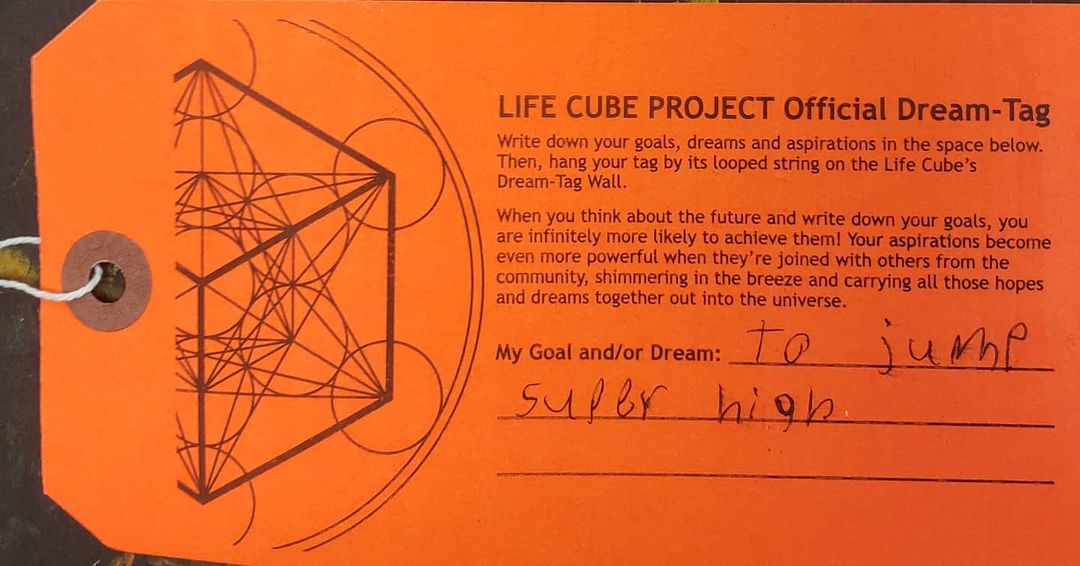 LIFE CUBE PROJECT Official Dream-Tag
Write down your goals, dreams and aspirations in the space below.
Then, hang your tag by its looped string on the Life Cube's
Dream-Tag Wall.
When you think about the future and write down your goals, you
are infinitely more likely to achieve them! Your aspirations become
even more powerful when they're joined with others from the
community, shimmering in the breeze and carrying all those hopes
and dreams together out into the universe.
My Goal and/or Dream: To jump
super high